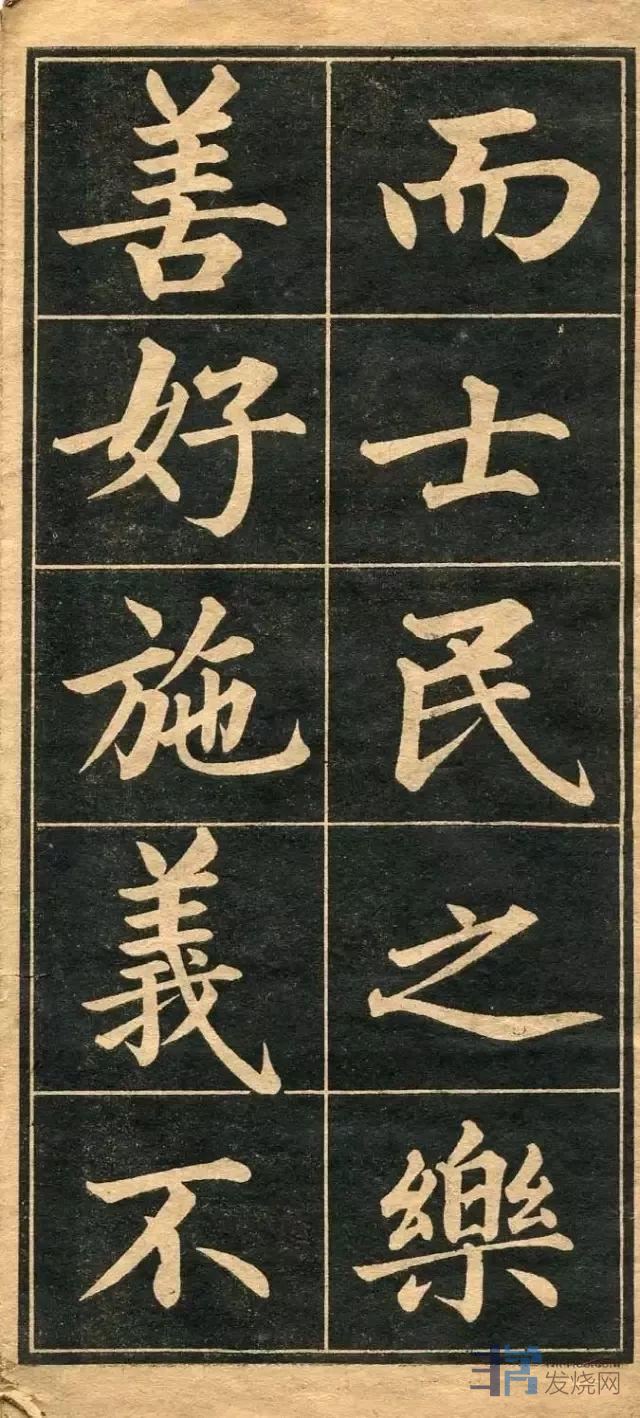 而士民之樂
善好施義不
发烧网